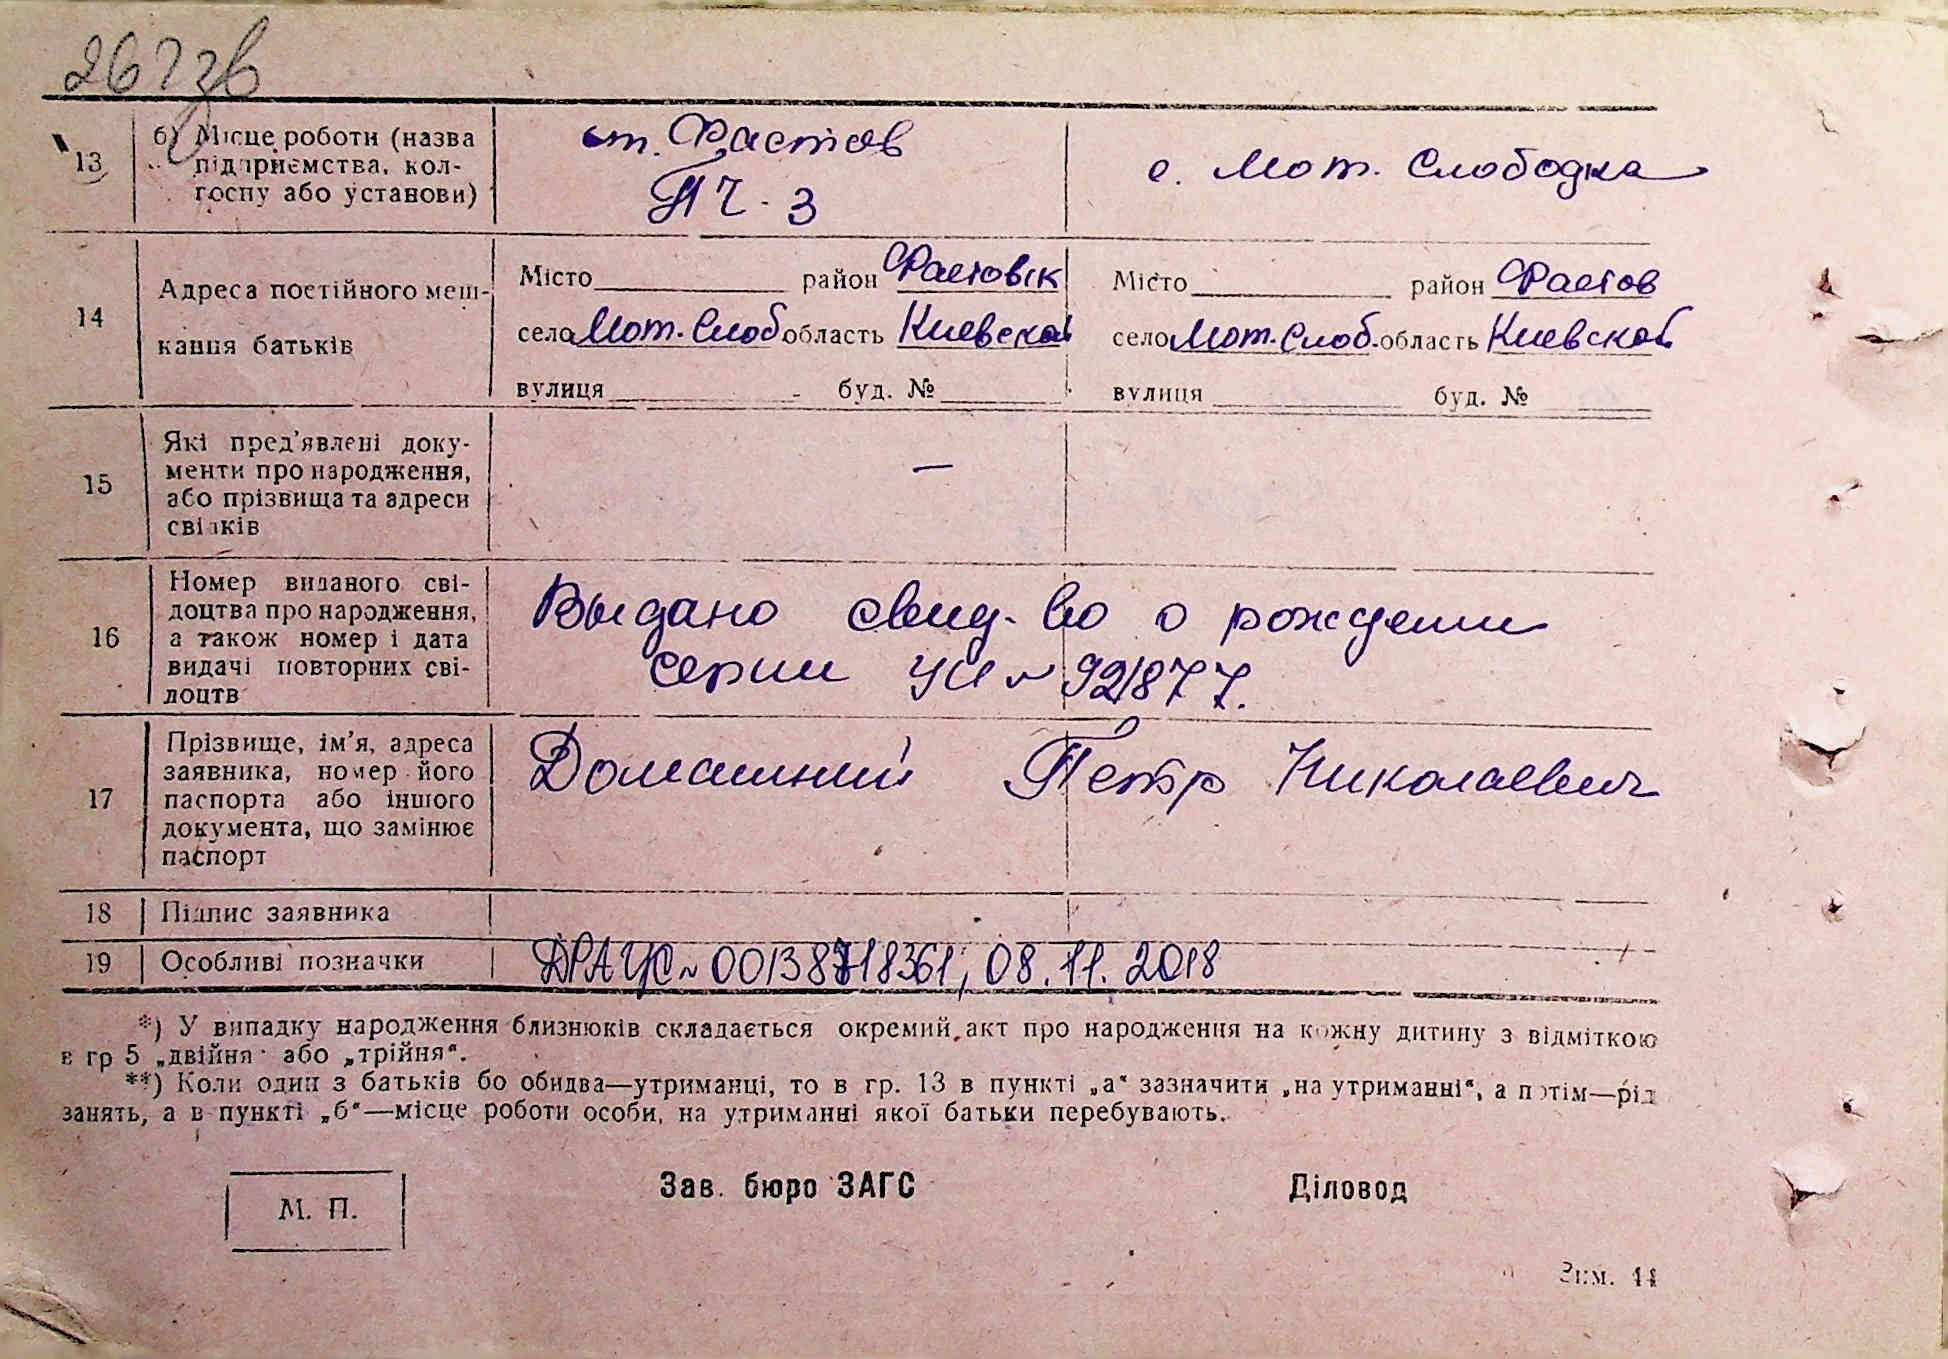 267зв
13 б) Місце роботи (назва підприємства, колгоспу або установи)
ст. Фастов
ПЧ-3
с. Мот. Слободка
14 Адреса постійного мешкання батьків
Місто район Фастовск
село Мот. Слоб область Киевской
вулиця буд. №
Місто район Фастов
село Мот. Слоб. область Киевской
вулиця буд. №
15 Які пред'явлені документи про народження, або прізвища та адреси свідків
—
16 Номер виданого свідоцтва про народження, а також номер і дата видачі повторних свідоцтв
Выдано свид-во о рождении
серии № 921877.
17 Прізвище, ім'я, адреса заявника, номер його паспорта або іншого документа, що замінює паспорт
Домашний Петр Николаевич
18 Підпис заявника
19 Особливі позначки
ДРАЦС № 00138718361, 08.11.2018
*) У випадку народження близнюків складається окремий акт про народження на кожну дитину з відміткою
в гр 5 „двійня“ або „трійня“.
**) Коли один з батьків бо обидва—утриманці, то в гр. 13 в пункті „а“ зазначити „на утриманні“, а потім—рід
занять, а в пункті „б“—місце роботи особи, на утриманні якої батьки перебувають.
М. П.
Зав. бюро ЗАГС
Діловод